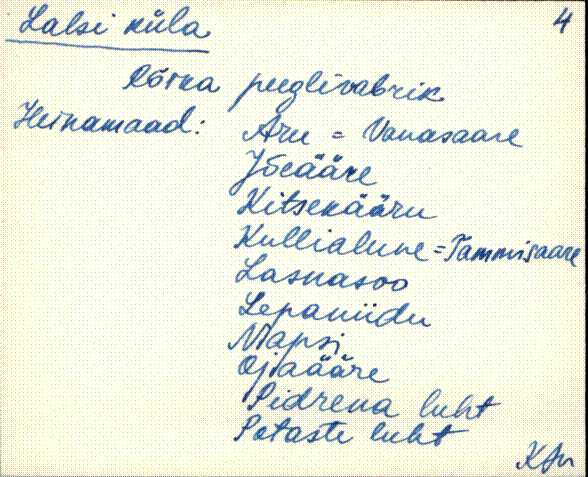 Lalsi küla 4
Rõika peeglivabrik
Heinamaad: Aru = Vanasaare
Jõeääre
Kitsekääru
Kullialune = Tammisaare
Lasnasoo
Lepaniidu
Mapsi
Ojaääre
Pidrena luht
Potaste luht